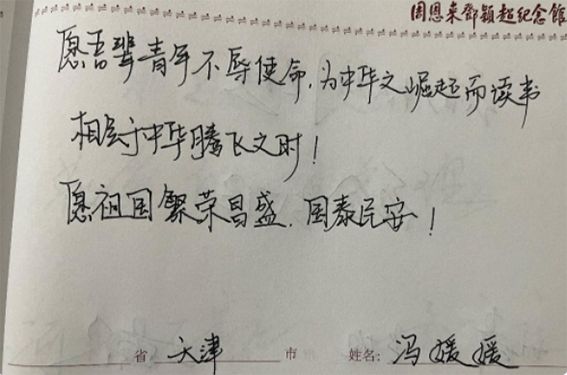 周恩来鄧穎超紀念館
愿吾辈青年不辱使命,为中华之崛起而读书
相会于中华腾飞之时!
愿祖国繁荣昌盛.国泰民安!
省 天津 市 姓名: 冯媛媛